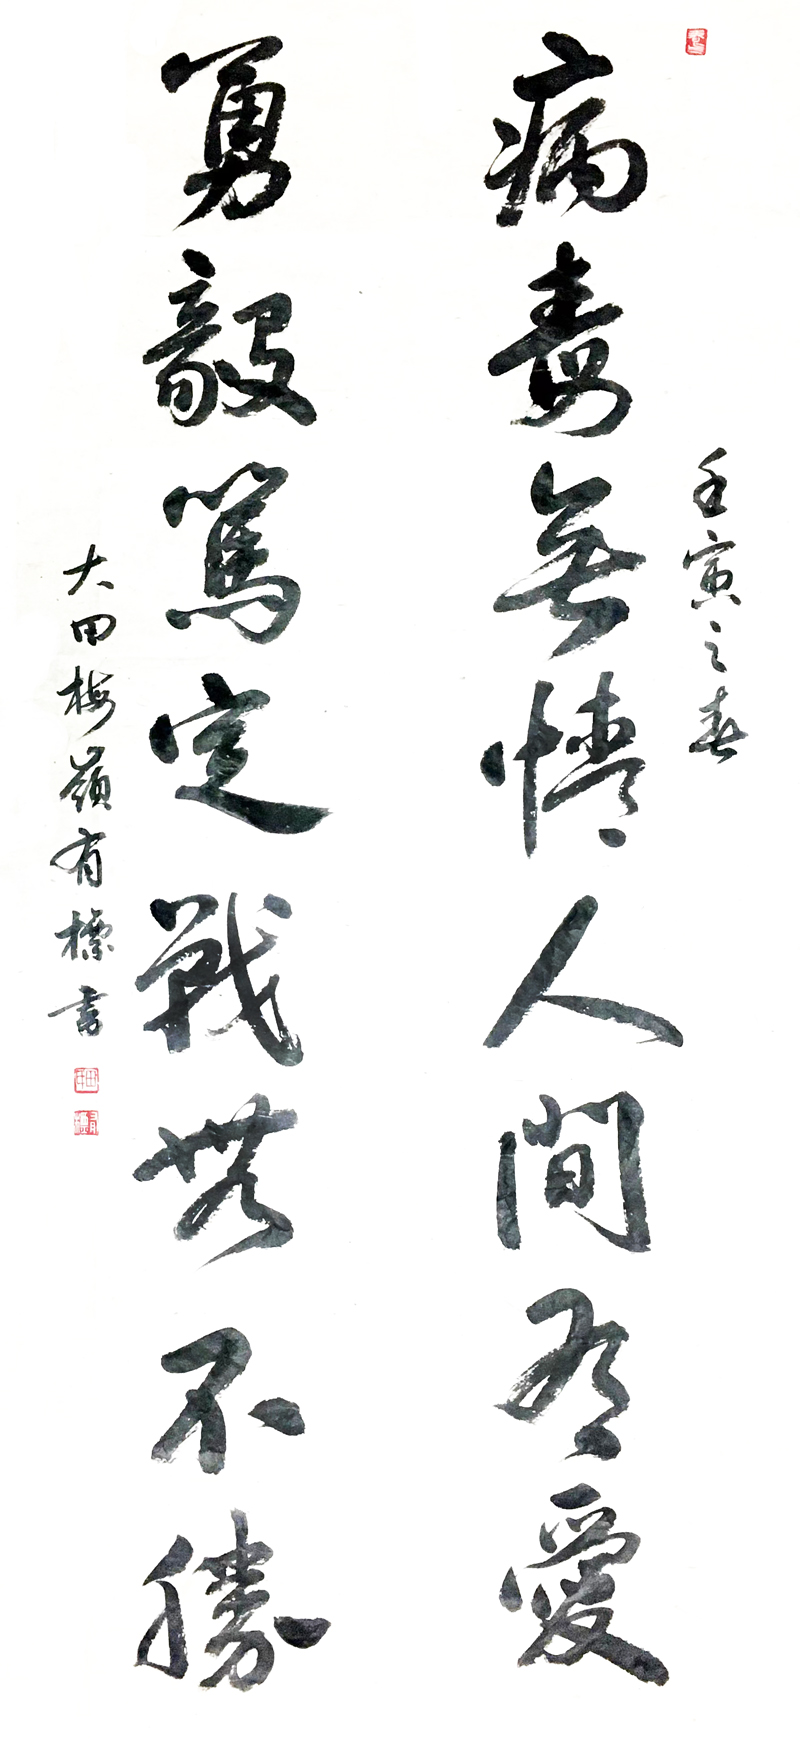 壬寅之春
病毒無情人間有愛
勇毅篤定戰無不勝
大田梅嶺有標書